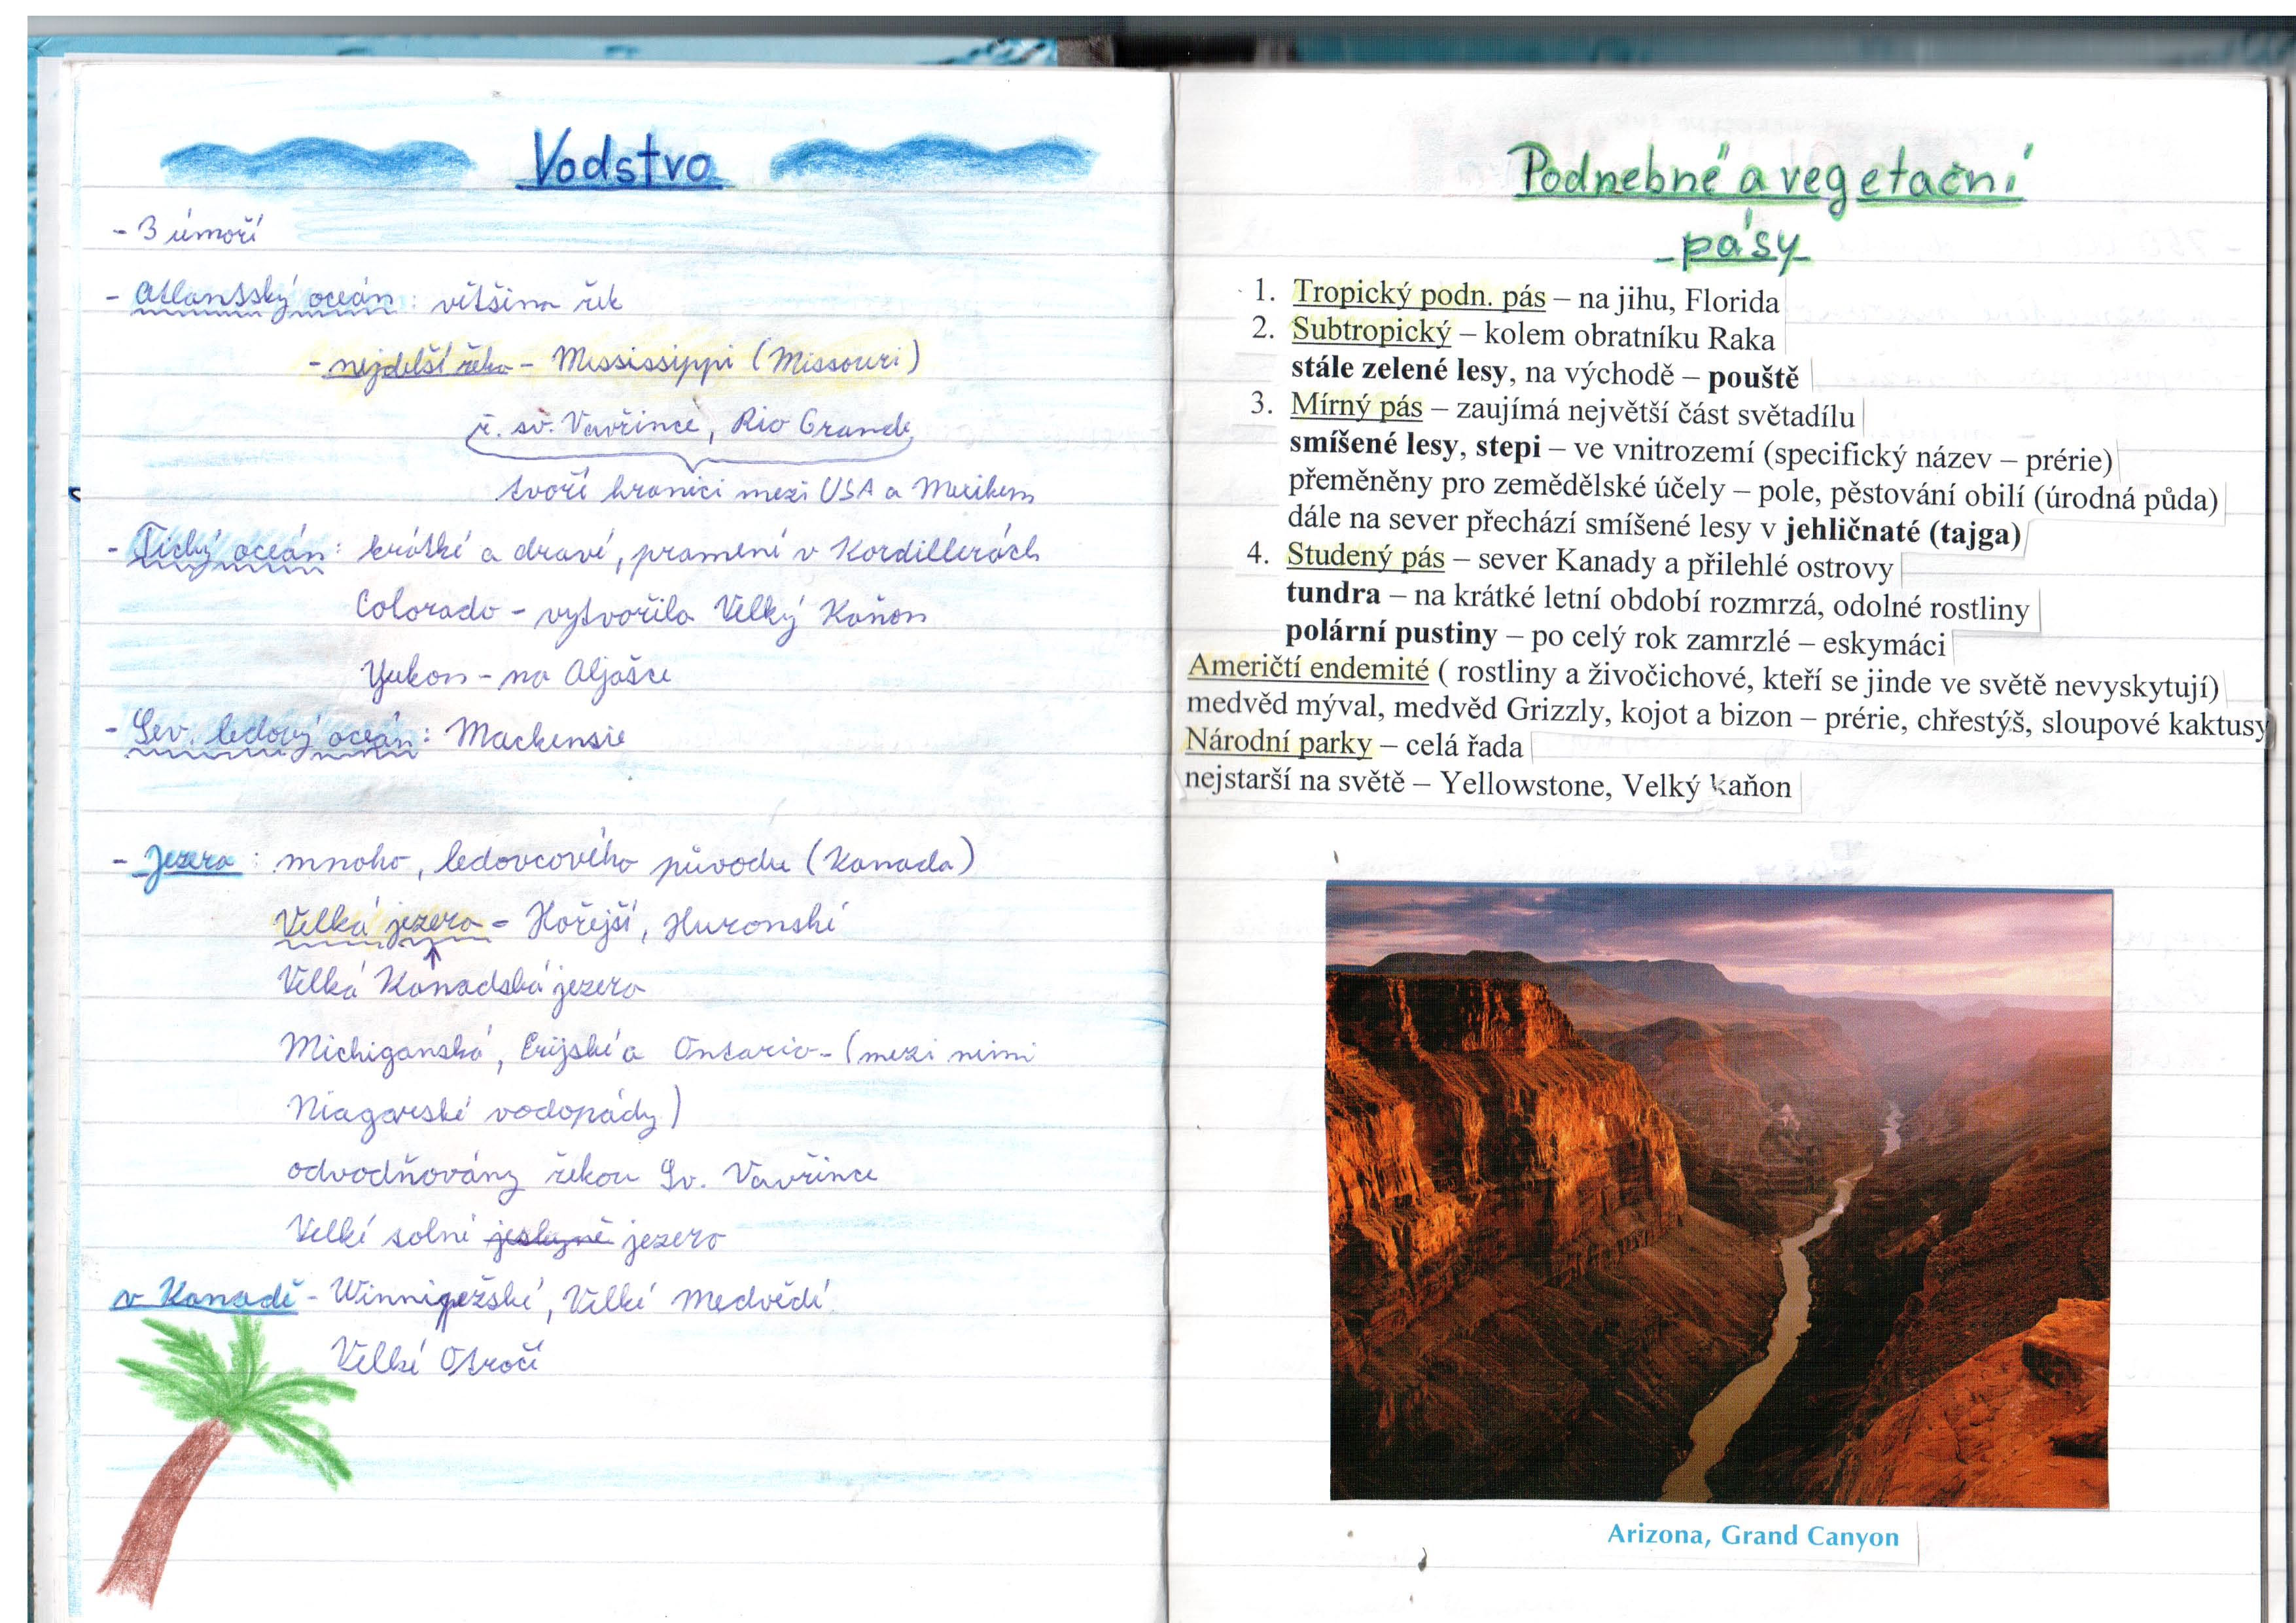 Vodstvo
- 3 úmoří
- Atlantský oceán: většina řek
- nejdelší řeka - Mississippi (Missouri)
ř. sv. Vavřince, Rio Grande
tvoří hranici mezi USA a Mexikem
- Tichý oceán: krátké a dravé, pramení v Kordillerách
Colorado - vytvořila Velký Kaňon
Yukon - na Aljašce
- Sev. ledový oceán: Mackensie
- Jezera: mnoho, ledovcového původu (Kanada)
Velká jezera - Hořejší, Huronské
Velká Kanadská jezera
Michiganská, Erijské a Ontario - (mezi nimi
Niagarské vodopády)
odvodňovány řekou Sv. Vavřince
Velké solné jeskyně jezero
v Kanadě - Winnipežské, Velké Medvědí
Velké Otročí
Podnebné a vegetační
pásy
1. Tropický podn. pás – na jihu, Florida
2. Subtropický – kolem obratníku Raka
stále zelené lesy, na východě – pouště
3. Mírný pás – zaujímá největší část světadílu
smíšené lesy, stepi – ve vnitrozemí (specifický název – prérie)
přeměněny pro zemědělské účely – pole, pěstování obilí (úrodná půda)
dále na sever přechází smíšené lesy v jehličnaté (tajga)
4. Studený pás – sever Kanady a přilehlé ostrovy
tundra – na krátké letní období rozmrzá, odolné rostliny
polární pustiny – po celý rok zamrzlé – eskymáci
Američtí endemité ( rostliny a živočichové, kteří se jinde ve světě nevyskytují)
medvěd mýval, medvěd Grizzly, kojot a bizon – prérie, chřestýš, sloupové kaktusy
Národní parky – celá řada
nejstarší na světě – Yellowstone, Velký kaňon
Arizona, Grand Canyon